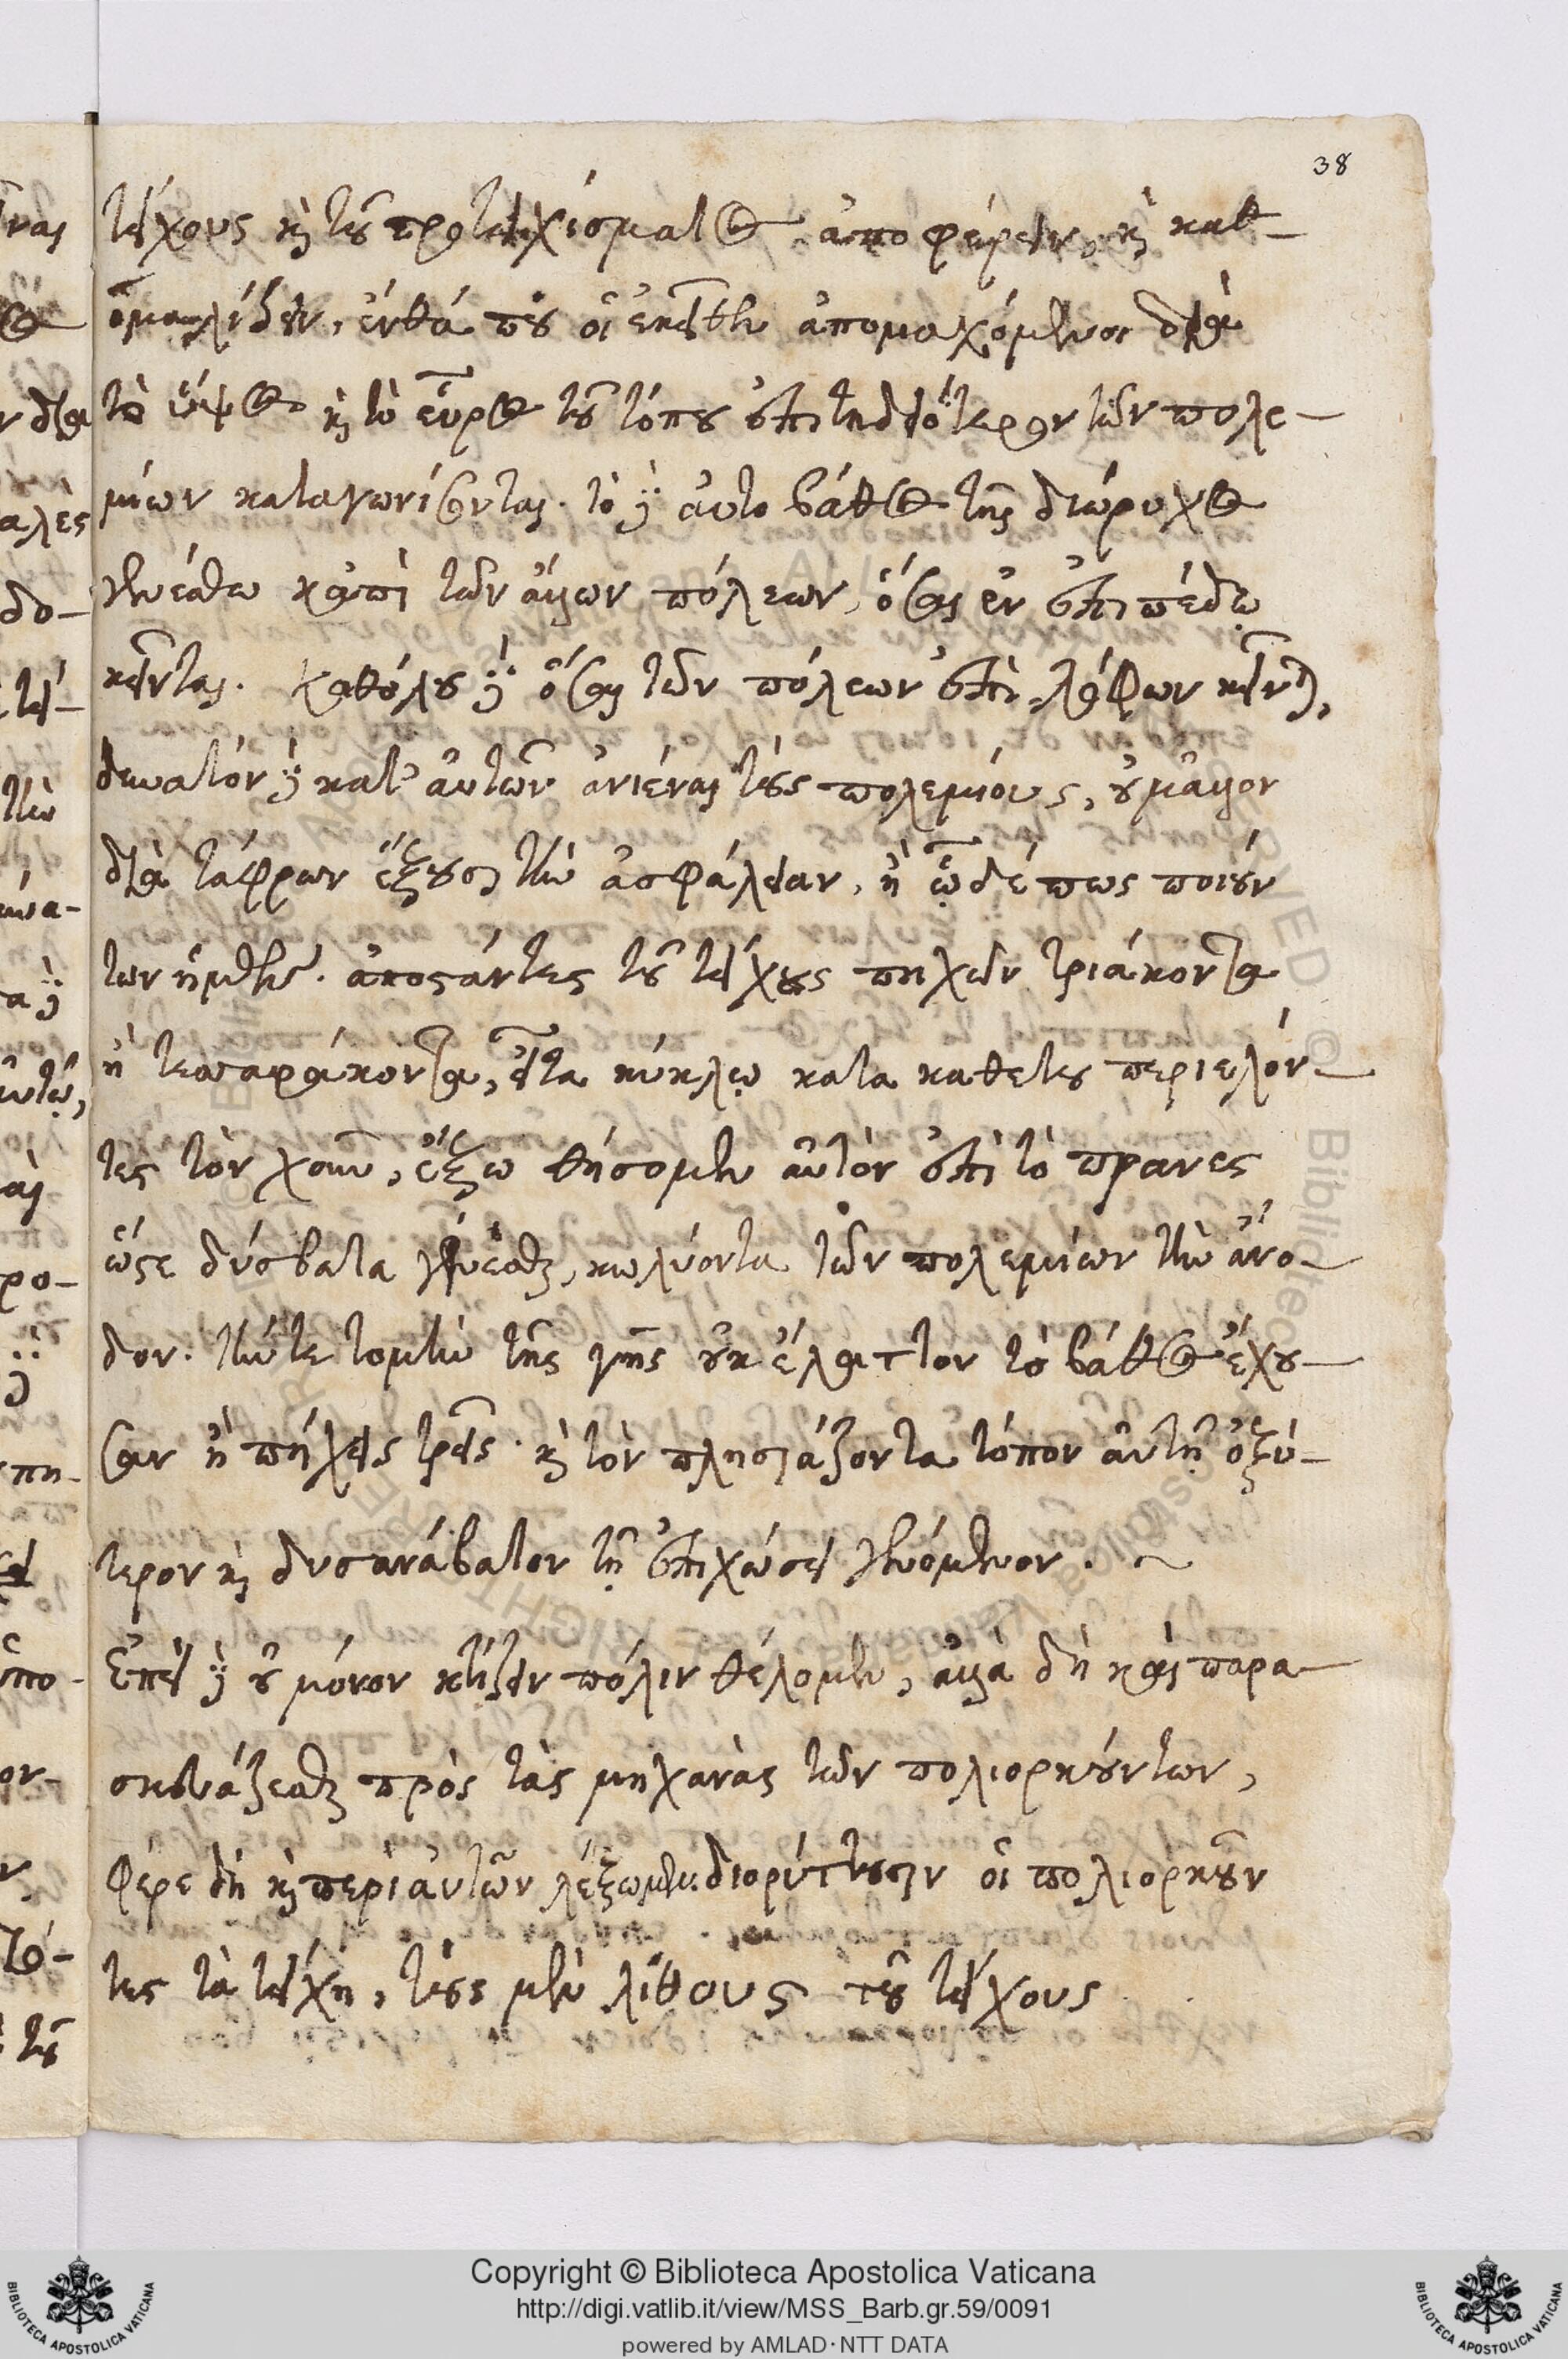 38
τείχους καὶ τοῦ προτειχίσματος ἀποφέρειν, καὶ καθ-
ομαλίζειν, ἔνθά που οἱ ἐκεῖθεν ἀπομαχόμενοι διὰ
τὸ ὕψος καὶ τὸ εὖρος τοῦ τόπου ἐπιτηδειότερον τῶν πολε-
μίων καταγωνίσονται. τὸ δὲ αὐτὸ βάθος τῆς διώρυχος
γενέσθω κᾀπὶ τῶν ἄλλων πόλεων, ὅσαι ἐν ἐπιπέδῳ
κεῖνται. καθόλου δὲ ὅσαι τῶν πόλεων ἐπὶ λόφων κεῖνται,
δυνατὸν δὲ κατ' αὐτῶν ἀνιέναι τοὺς πολεμίους, οὐ μᾶλλον
διὰ τάφρων ἕξουσι τὴν ἀσφάλειαν, ἢ ᾧδέ πως ποιούν
των ἡμῶν. ἀποστάντες τοῦ τείχους πηχῶν τριάκοντα
ἢ τεσσαράκοντα, εἶτα κύκλῳ κατα καθετου περιελόν-
τες τὸν χοῦν, ἔξω θήσομεν αὐτὸν ἐπὶ τὸ πρανες
ὥστε δύσβατα γενέσθαι, κωλύοντα τῶν πολεμίων τὴν ἄνο-
δον. τήν τε τομὴν τῆς γῆς οὐκ ἔλαττον τὸ βάθος ἔχου-
σαν ἢ πήχεις τρεῖς. καὶ τὸν πλησιάζοντα τόπον αὐτῇ ὀξύ-
τερον καὶ δυσανάβατον τῇ ἐπιχώσει γενόμενον.
Ἐπεὶ δὲ οὐ μόνον κτίζειν πόλιν θέλομεν, ἀλλὰ δὴ καὶ παρα-
σκευάζεσθαι πρὸς τὰς μηχανὰς τῶν πολιορκούντων,
Φέρε δὴ καὶ περὶ αὐτῶν λέξωμεν. διορύττουσιν οἱ πολιορκοῦν
τες τὰ τείχη, τοὺς μὲν λίθους τοῦ τείχους
Copyright © Biblioteca Apostolica Vaticana
http://digi.vatlib.it/view/MSS_Barb.gr.59/0091
powered by AMLAD·NTT DATA